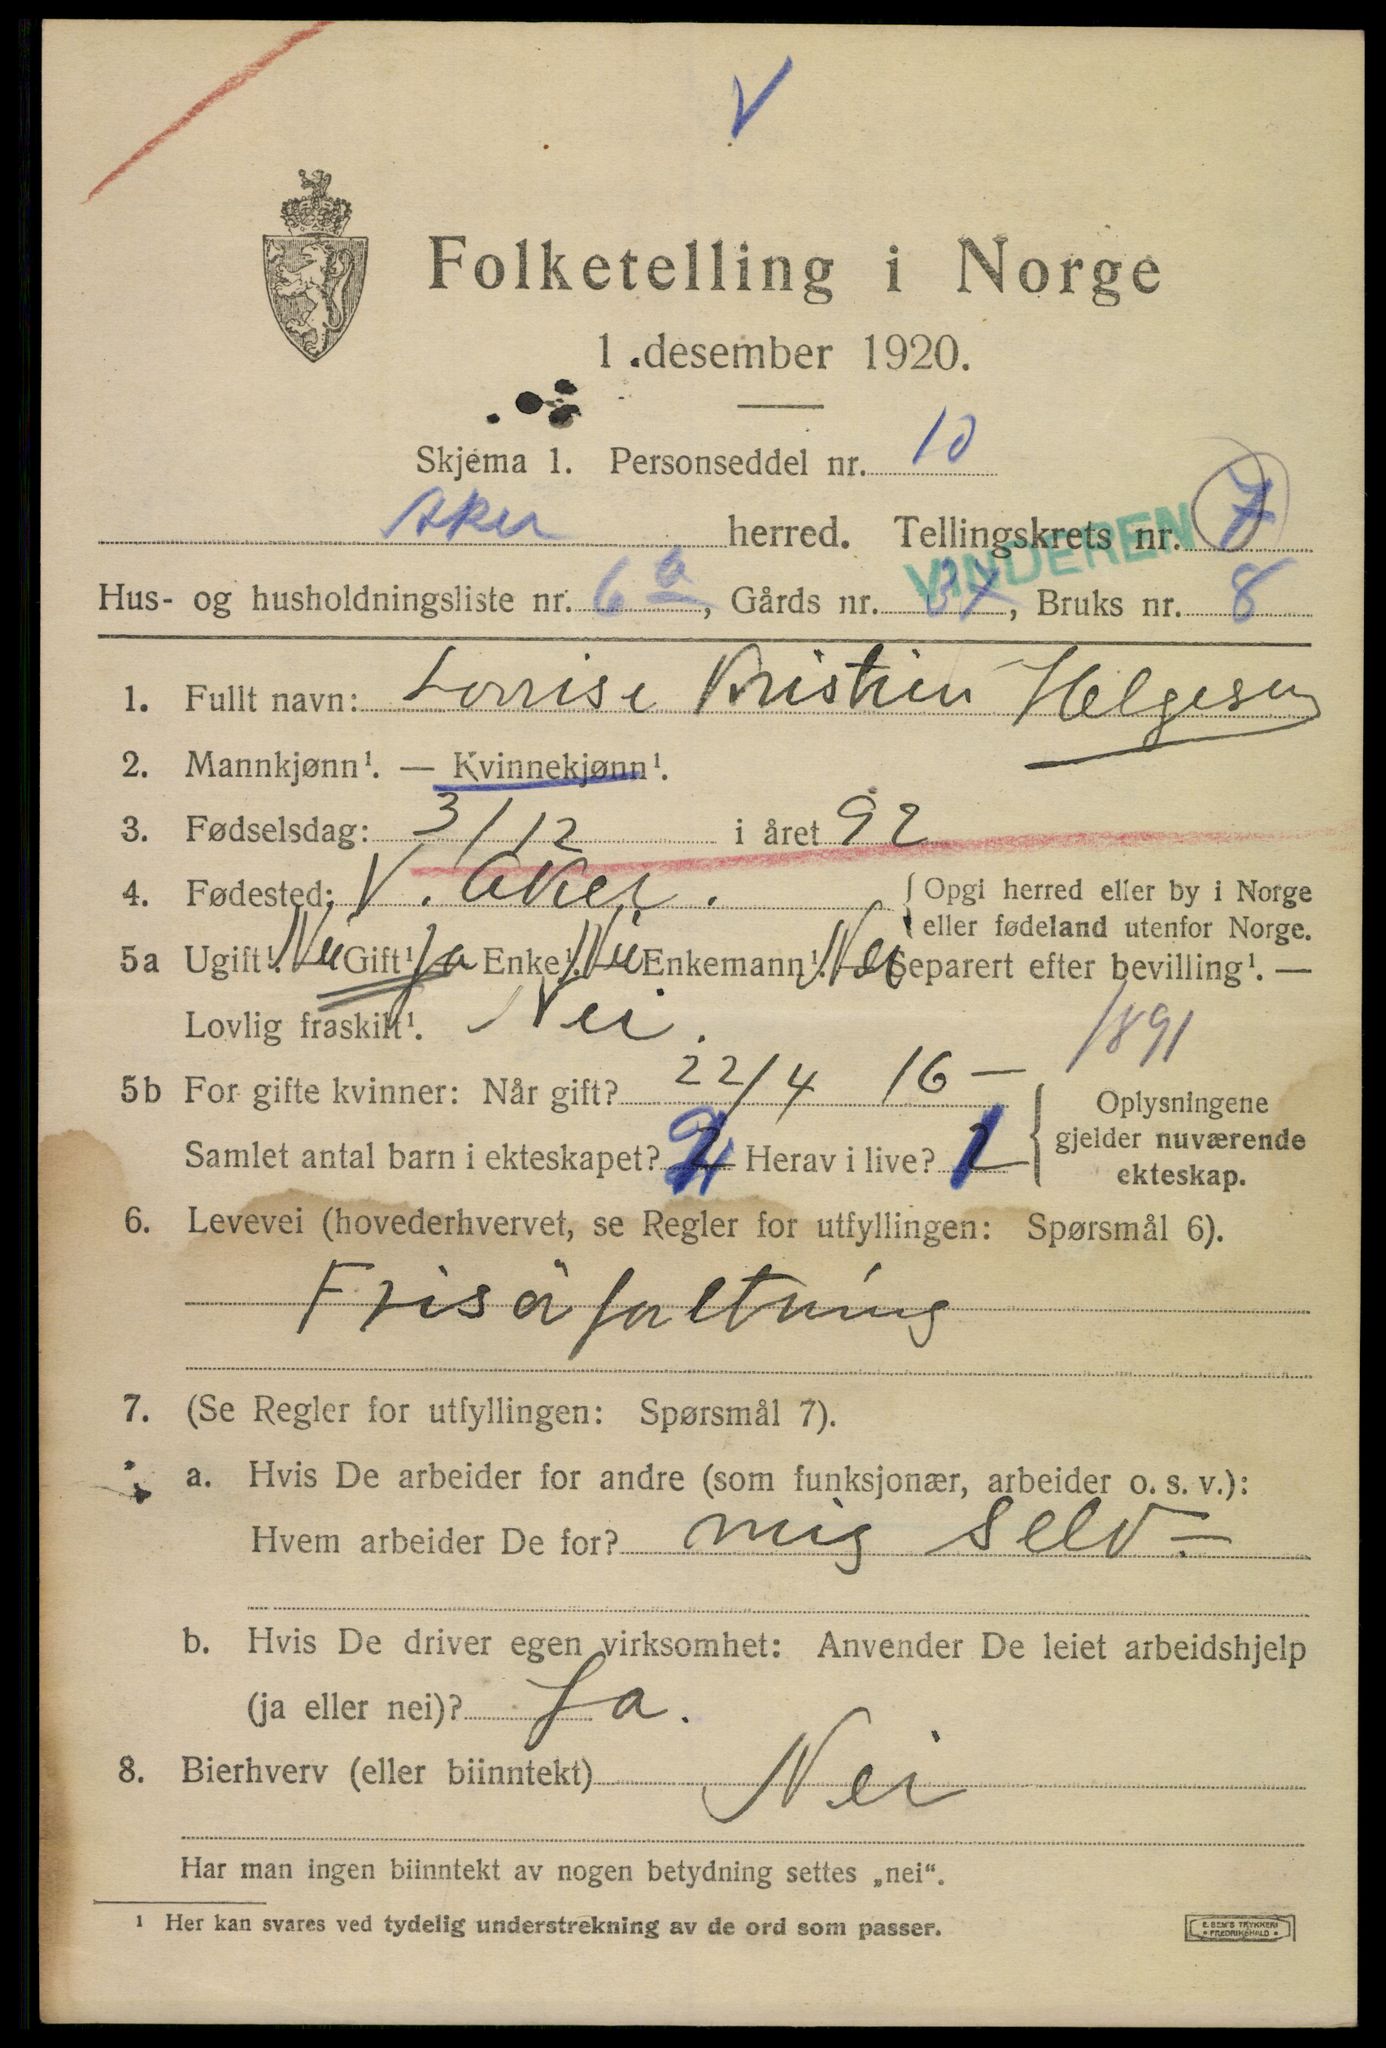 V
Folketelling i Norge
1. desember 1920.
Skjema 1. Personseddel nr. 10
Aker herred. Tellingskrets nr. 7
VINDEREN
Hus- og husholdningsliste nr. 6a, Gårds nr. 37, Bruks nr. 8
1. Fullt navn: Lovise Kristine Helgesen
2. Mannkjønn¹. — Kvinnekjønn¹.
3. Fødselsdag: 3/12 i året 92
4. Fødested: V. Aker. { Opgi herred eller by i Norge
eller fødeland utenfor Norge.
5a Ugift¹. Nei Gift¹ Ja Enke¹. Nei Enkemann¹. Nei Separert efter bevilling¹. —
Lovlig fraskilt¹. Nei. 1891
5b For gifte kvinner: Når gift? 22/4 16 — { Oplysningene
Samlet antal barn i ekteskapet? 2 Herav i live? 1 gjelder nuværende
ekteskap.
6. Levevei (hovederhvervet, se Regler for utfyllingen: Spørsmål 6).
Frisörforretning
7. (Se Regler for utfyllingen: Spørsmål 7).
a. Hvis De arbeider for andre (som funksjonær, arbeider o. s. v.):
Hvem arbeider De for? mig selv —
b. Hvis De driver egen virksomhet: Anvender De leiet arbeidshjelp
(ja eller nei)? Ja.
8. Bierhverv (eller biinntekt) Nei
Har man ingen biinntekt av nogen betydning settes „nei“.
¹ Her kan svares ved tydelig understrekning av de ord som passer.
E. SEM'S TRYKKERI
FREDRIKSHALD